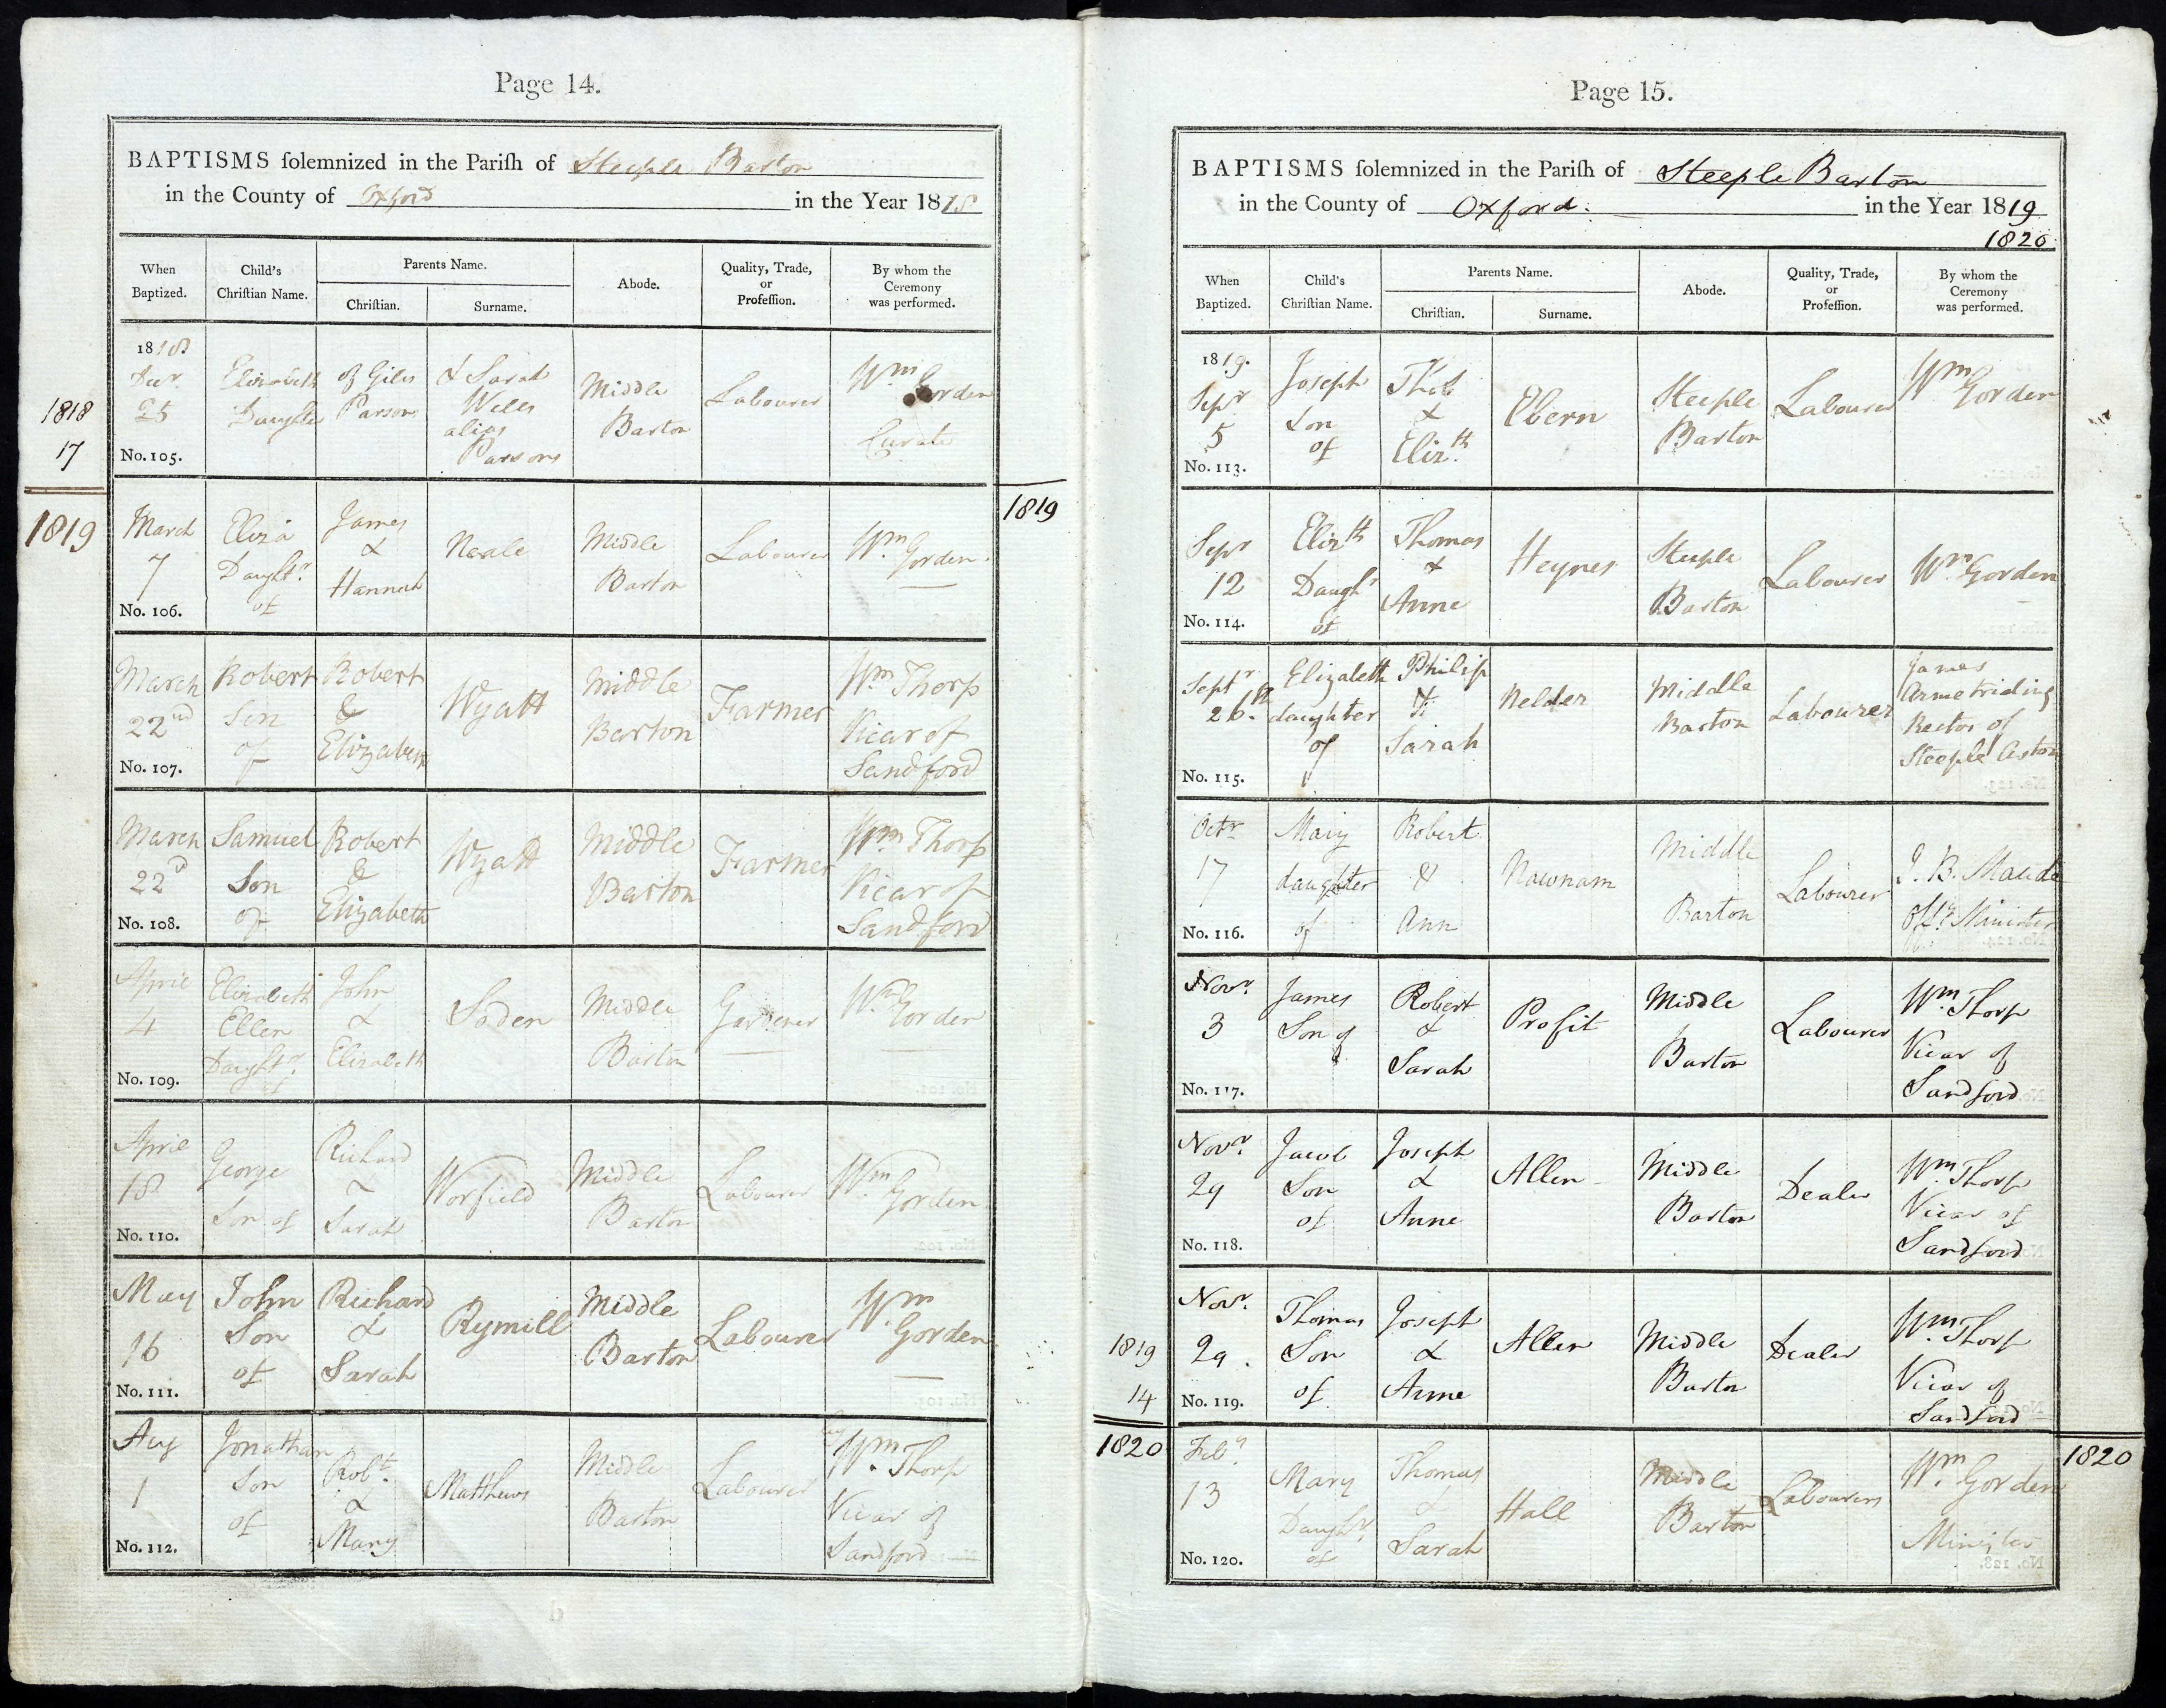 Page 14.
BAPTISMS ſolemnized in the Pariſh of Steeple Barton
in the County of Oxford in the Year 1818
When
Baptized.
Child's
Chriſtian Name.
Parents Name.
Chriſtian.
Surname.
Abode.
Quality, Trade,
or
Profeſſion.
By whom the
Ceremony
was performed.
1818
17
1818.
Decr.
25
No. 105.
Elizabeth
Daughter
of Giles
Parsons
& Sarah
Wells
alias
Parsons
Middle
Barton
Labourer
Wm Gorden
Curate
1819
1819
March
7
No. 106.
Eliza
Daughtr.
of
James
&
Hannah
Neale
Middle
Barton
Labourer
Wm Gorden.
March
22nd
No. 107.
Robert
Son
of
Robert
&
Elizabeth
Wyatt
Middle
Barton
Farmer
Wm Thorp
Vicar of
Sandford
March
22d
No. 108.
Samuel
Son
of
Robert
&
Elizabeth
Wyatt
Middle
Barton
Farmer
Wm Thorp
Vicar of
Sandford
April
4
No. 109.
Elizabeth
Ellen
Daughtr.
of
John
&
Elizabeth
Soden
Middle
Barton
Gardener
Wm Gorden
April
18
No. 110.
George
Son of
Richard
&
Sarah
Worfield
Middle
Barton
Labourer
Wm Gorden
May
16
No. 111.
John
Son
of
Richard
&
Sarah
Rymill
Middle
Barton
Labourer
Wm
Gorden
Aug
1
No. 112.
Jonathan
Son
of
Robt.
&
Mary
Matthews
Middle
Barton
Labourer
Wm. Thorp
Vicar of
Sandford
Page 15.
BAPTISMS ſolemnized in the Pariſh of Steeple Barton
in the County of Oxford. in the Year 1819
1820
When
Baptized.
Child's
Chriſtian Name.
Parents Name.
Chriſtian.
Surname.
Abode.
Quality, Trade,
or
Profeſſion.
By whom the
Ceremony
was performed.
1819.
Sepr
5
No. 113.
Joseph
Son
of
Thos
&
Elizth.
Ebern
Steeple
Barton
Labourer
Wm Gorden
Sepr
12
No. 114.
Elizth
Daughr
of
Thomas
&
Anne
Heynes
Steeple
Barton
Labourer
Wm Gorden
Septr
26th.
No. 115.
Elizabeth
daughter
of
Philip
&
Sarah
Nelder
Middle
Barton
Labourer
James
Armetriding
Rector of
Steeple Aston
Octr
17
No. 116.
Mary
daughter
of
Robert
&
Ann
Nawnam
Middle
Barton
Labourer
J. B. Maude
Offg. Minister
Novr.
3
No. 117.
James
Son of
Robert
&
Sarah
Profit
Middle
Barton
Labourer
Wm. Thorp
Vicar of
Sandford
Novr.
29
No. 118.
Jacob
Son
of
Joseph
&
Anne
Allen
Middle
Barton
Dealer
Wm. Thorp
Vicar of
Sandford
1819
14
Novr.
29.
No. 119.
Thomas
Son
of
Joseph
&
Anne
Allen
Middle
Barton
Dealer
Wm. Thorp
Vicar of
Sandford
1820
1820
Feby.
13
No. 120.
Mary
Daughtr.
of
Thomas
&
Sarah
Hall
Middle
Barton
Labourers
Wm. Gorden
Minister